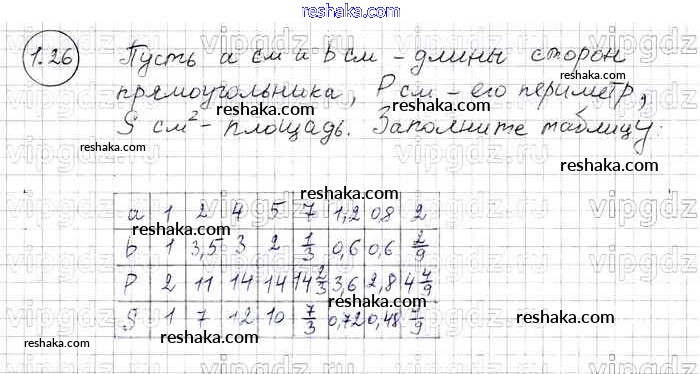 reshaka.com
1.26 Пусть a см и b см – длины сторон
прямоугольника, P см – его периметр,
reshaka.com
S см² – площадь. Заполните таблицу:
reshaka.com
reshaka.com
reshaka.com
a 1 2 4 5 7 1,2 0,8 2
reshaka.com
b 1 3,5 3 2 1/3 0,6 0,6 2/9
P 2 11 14 14 14 2/3 3,6 2,8 4 4/9
reshaka.com
S 1 7 12 10 7/3 0,72 0,48
reshaka.com
reshaka.com
vipgdz.ru